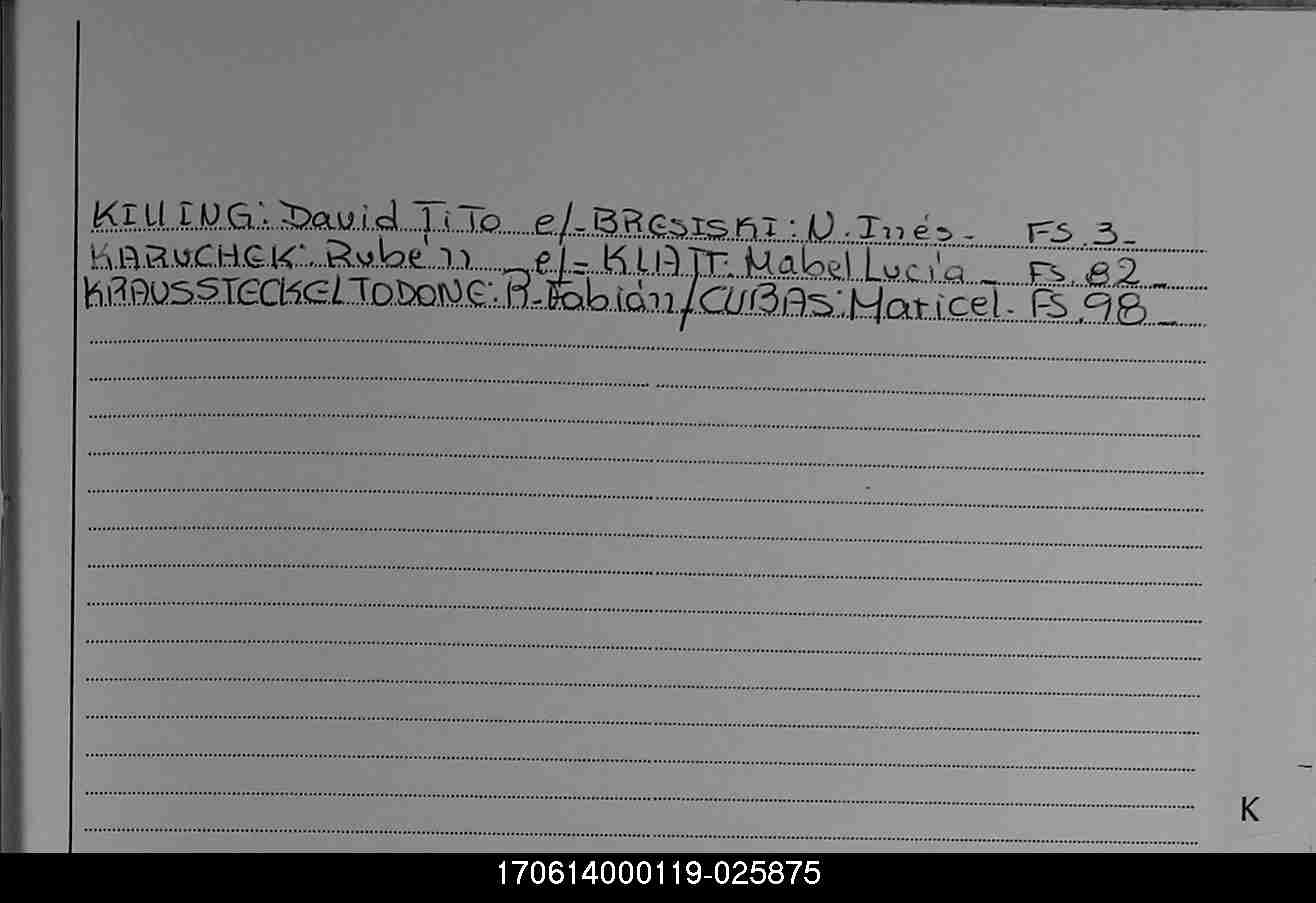 KILLING: David Tito e/- BRESISKI: N. Inés- FS.3-
KARUCHEK: Rubén - e/= KLIATT: Mabel Lucía - FS.82-
KRAUSSTECKEL TODONE: R-Fabián/CUBAS: Maricel- FS.98-
K
170614000119-025875